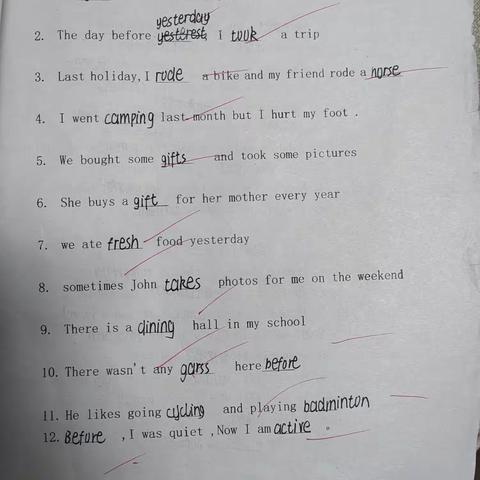 yesterday
2. The day before yesterest, I took a trip
3. Last holiday, I rode a bike and my friend rode a horse
4. I went camping last month but I hurt my foot .
5. We bought some gifts and took some pictures
6. She buys a gift for her mother every year
7. we ate fresh food yesterday
8. sometimes John takes photos for me on the weekend
9. There is a dining hall in my school
10. There wasn't any garss here before
11. He likes going cycling and playing badminton
12. Before , I was quiet , Now I am active 。